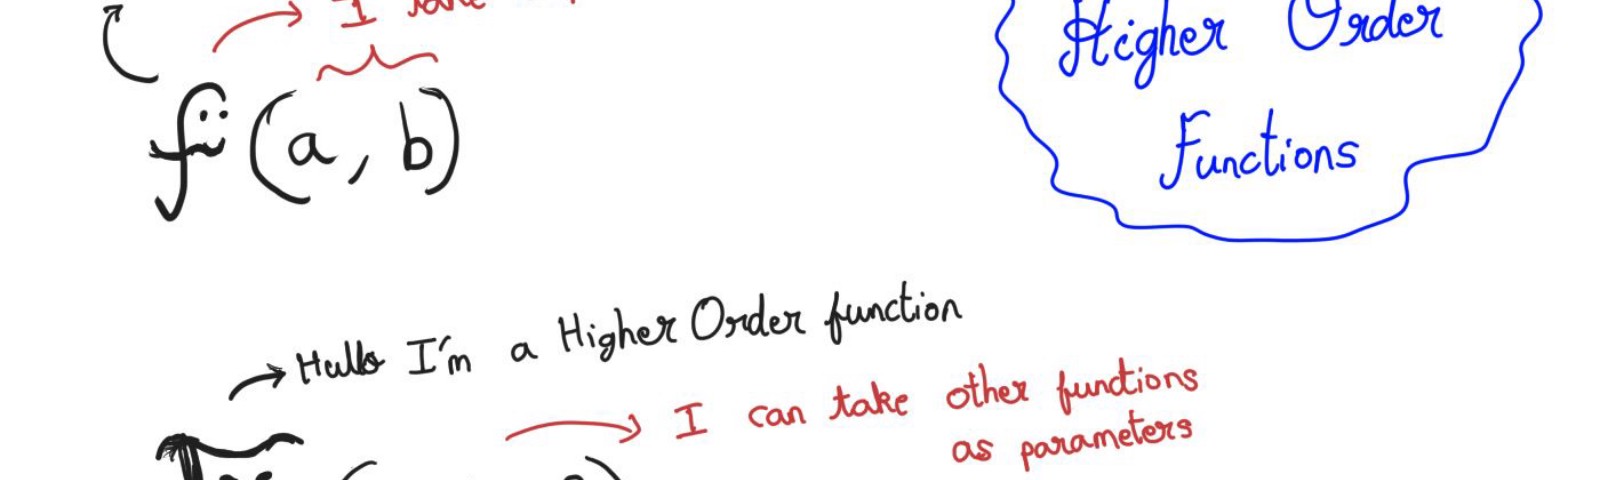 I
f(a, b)
Higher Order
Functions
Hello I'm a Higher Order function
I can take other functions
as parameters